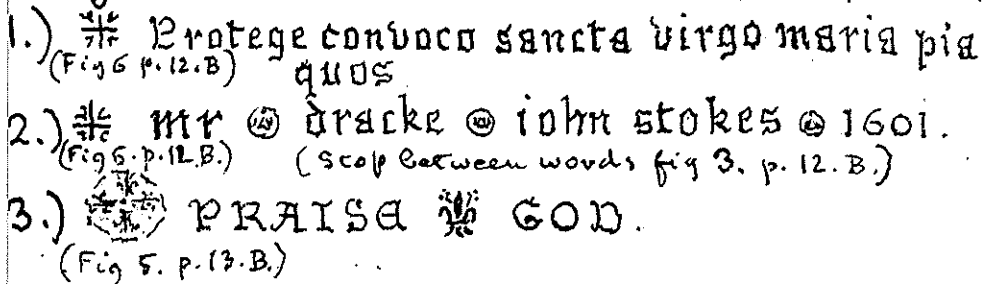 1.) Protege convoco sancta virgo maria pia
(Fig 6 p. 12. B) quos
2.) mr dracke iohn stokes 1601.
(Fig 6. p. 12. B.) (Stop between words fig 3. p. 12. B.)
3.) PRAISE GOD.
(Fig 5. p. 13. B.)